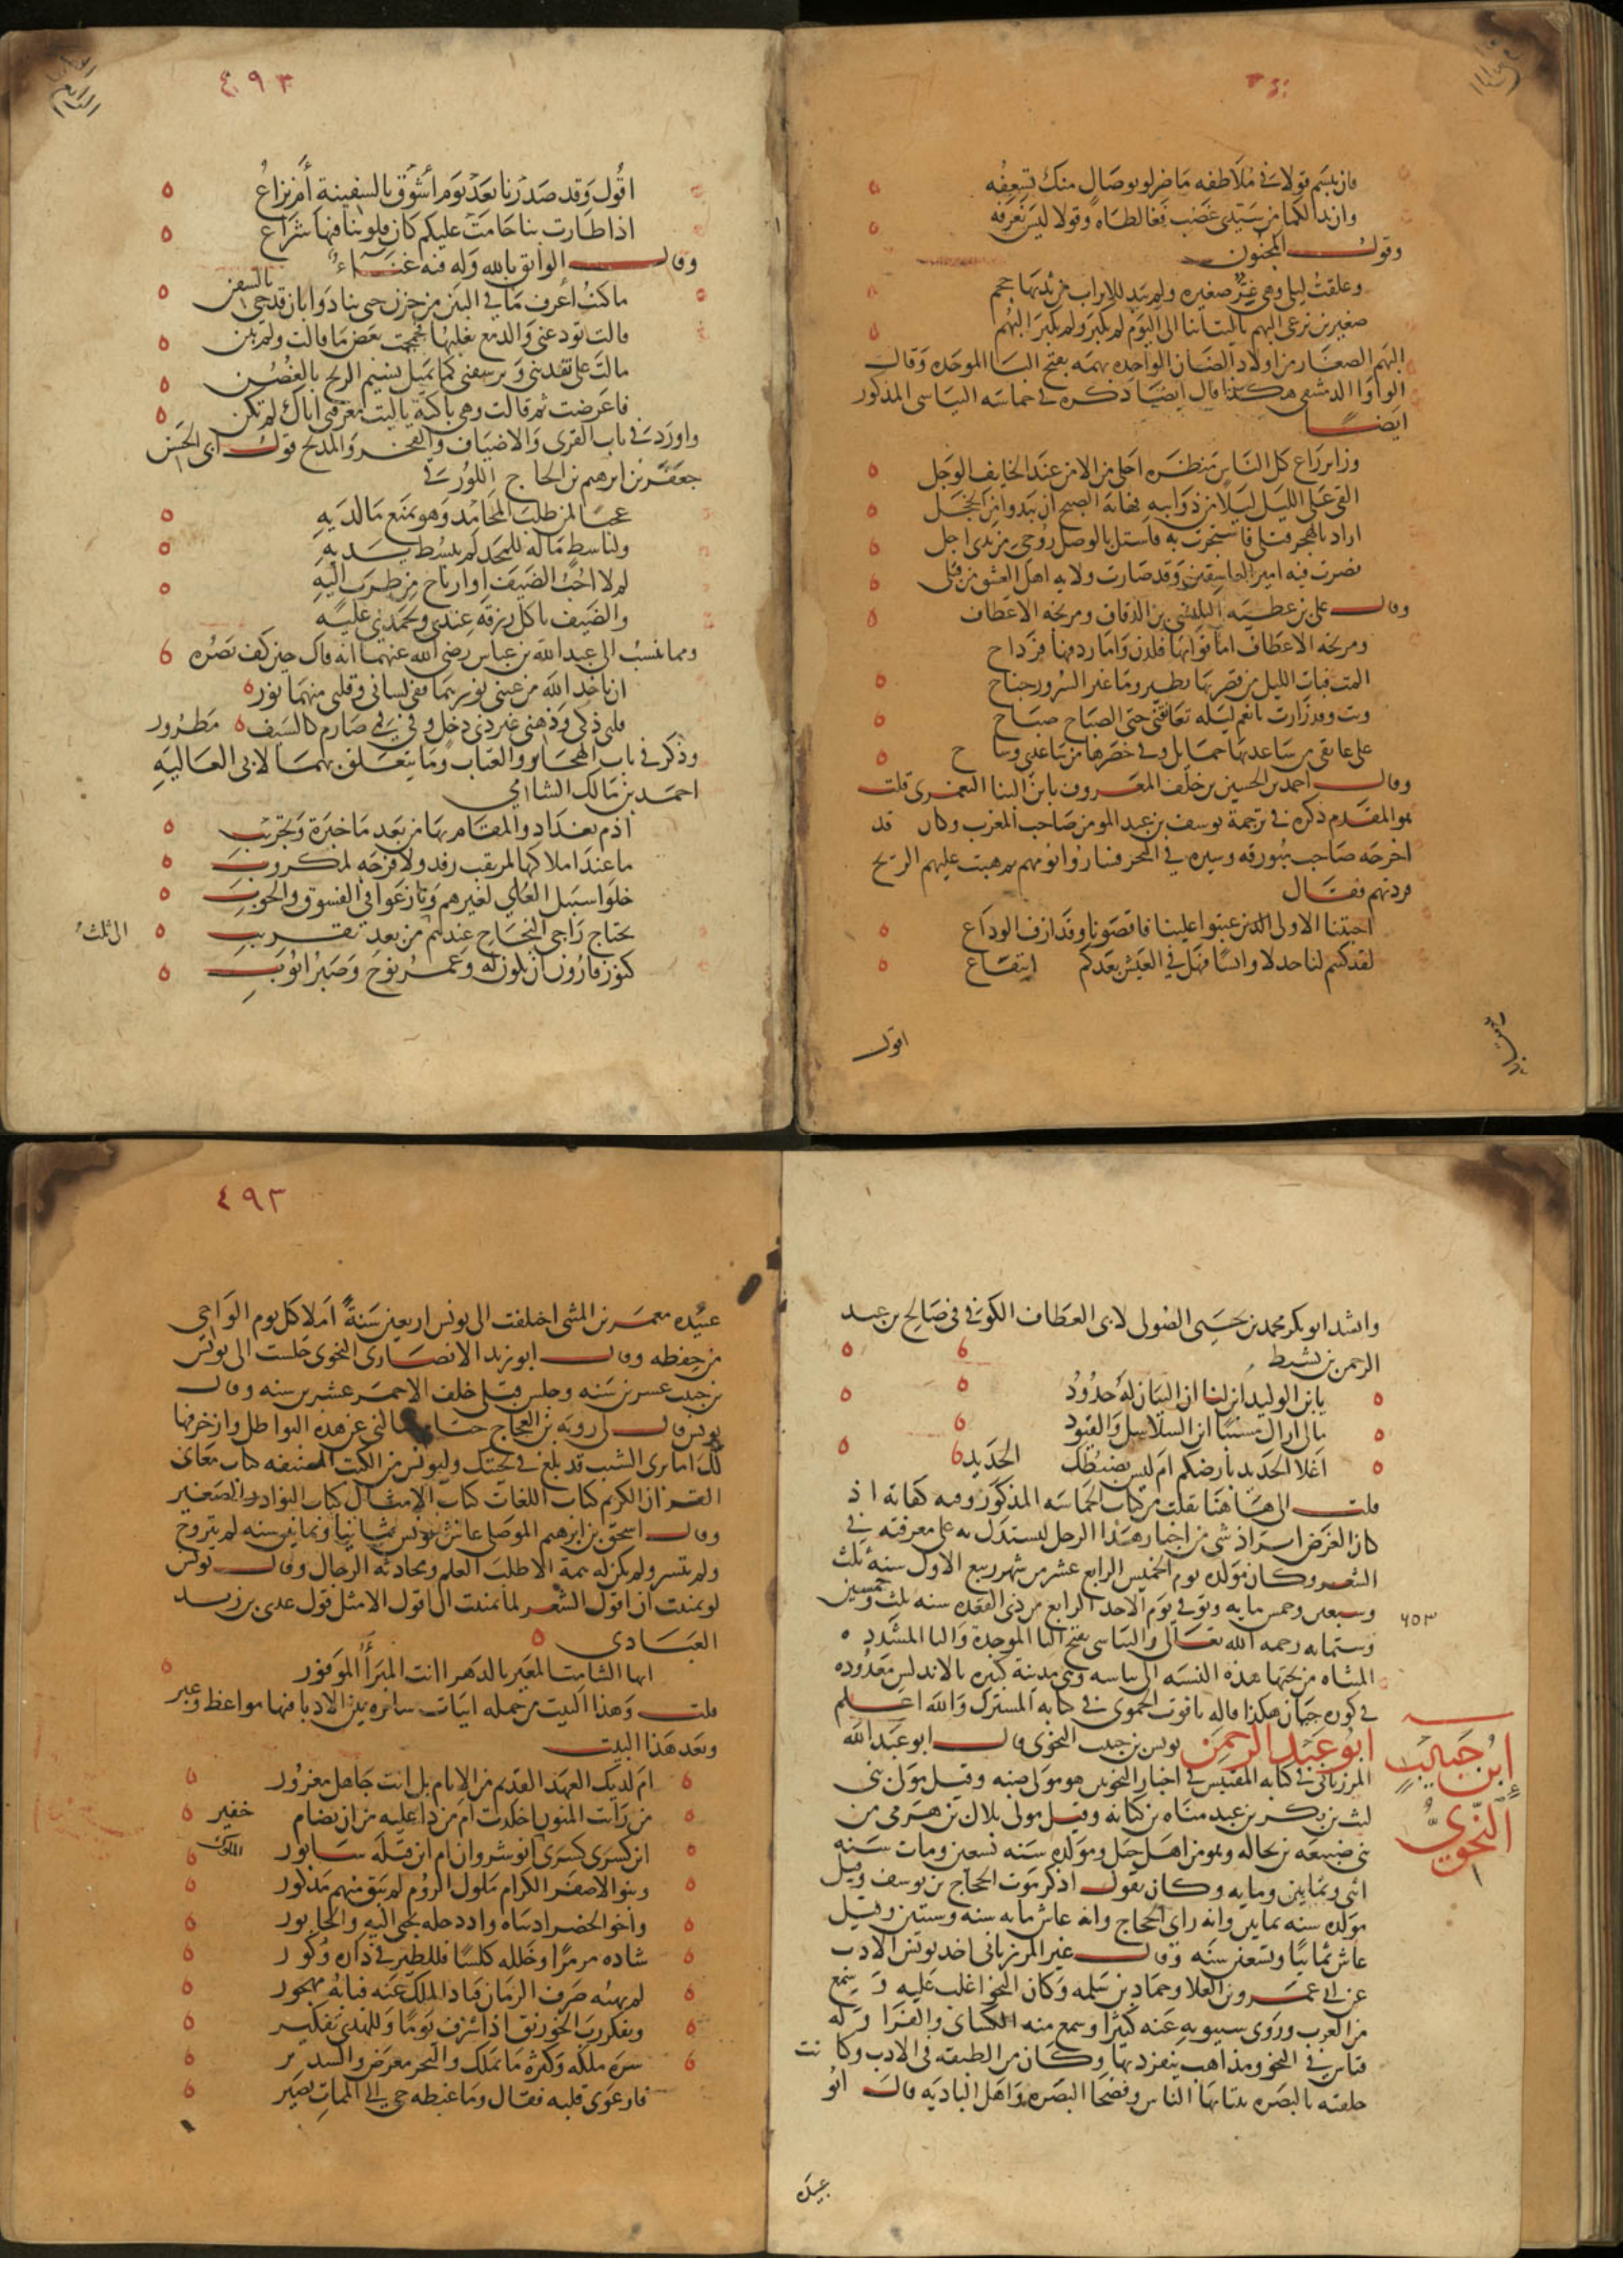 فان تبسم قولا في ملاطفه ما ضر لو بوصال منك تسعفه
وان بدا لكما من سيدي غضب فغالطاه وقولا ليس نعرفه
وقول المجنون
وعلقت ليلى وهي غر صغيره ولم يبد للاتراب من ثديها حجم
صغيرين نرعى البهم يا ليت اننا الى اليوم لم نكبر ولم تكبر البهم
البهم الصغار من اولاد الضان الواحده بهمه بفتح البا الموحده وقال
الواوا الدمشقي هكذا قال ايضا ذكره في حماسه البياسي المذكور
ايضا
وزاير راع كل الناس منظره احلى من الامن عند الخايف الوجل
القى على الليل ليلا من ذوايبه فهابه الصبح ان يبدو من الخجل
اراد بالهجر قتلي فاستجرت به فاستل بالوصل روحي من يدي اجلي
فصرت فيه امير العاشقين وقد صارت ولايه اهل العشق من قبلي
وقال علي بن عطيه البلنسي بن الزقاق ومرتجه الاعطاف
ومرتجه الاعطاف اما قوامها فلدن واما ردفها فرداح
المت فبات الليل من قصر بها يطير وما غير السرور جناح
وبت وقد زارت بانعم ليله تعانقني حتى الصباح صباح
على عاتقي من ساعديها حمايل وفي خصرها من ساعدي وشاح
وقال احمد بن الحسين بن خلف المعروف بابن البنا اليعمري قلت
هو المقدم ذكره في ترجمة يوسف بن عبد المومن صاحب المغرب وكان قد
اخرجه صاحب ميورقه وسيره في البحر فساروا يومهم هبت عليهم الريح
فردتهم فقال
احبتنا الاولى الذين عتبوا علينا فاقصونا وقد ازف الوداع
لقد كنتم لنا جدلا وانسا فهل في العيش بعدكم انتفاع
اقول
٤٩٣
اقول وقد صدرنا بعد يوم أشوق بالسفينة أم نزاع
اذا طارت بنا حامت عليكم كان قلوبنا فيها شراع
وقال الواثق بالله وله فيه غناء
ما كنت أعرف ما في البين من حزن حتى تنادوا بان قد جي بالسفن
قالت تودعني والدمع يغلبها فجمجمت بعض ما قالت ولم تبن
مالت علي تفديني وترشفني كما يميل نسيم الريح بالغصن
فاعرضت ثم قالت وهي باكية يا ليت معرفتي اياك لم تكن
واورد في باب القرى والاضياف والفخر والمديح قول ابي الحسن
جعفر بن ابرهيم بن الحاج اللورقي
عجبا لمن طلب المحامد وهو يمنع ما لديه
ولباسط ماله للمجد لم يبسط يديه
لم لا احب الضيف او ارتاح من طرب اليه
والضيف ياكل رزقه عندي ويحمدني عليه
ومما نسب الى عبد الله بن عباس رضي الله عنهما انه قال حين كف بصره
ان ياخذ الله من عيني نورهما ففي لساني وقلبي منهما نور
قلبي ذكي وذهني غير ذي دخل وفي في صارم كالسيف مطرور
وذكر في باب الهجا والعتاب وما يتعلق بهما لابي العاليه
احمد بن مالك الشامي
اذم بغداد والمقام بها من بعد ما خبرة وتجريب
ما عند املاكها لمرتقب رفد ولا فرجه لمكروب
خلوا سبيل العلي لغيرهم ونازعوا في الفسوق والحوب
يحتاج راجي النجاح عندهم من بعد تقريب
الى ثلث
كنوز قارون ان يكون له وعمر نوح وصبر ايوب
وانشد ابو بكر محمد بن يحيى الصولي لابي العطاف الكوفي في صالح بن عبد
الرحمن بن نشيط
يا بن الوليد ابن لنا ان البيان له حدود
مالي اراك مسيبا اين السلاسل والقيود
اغلا الحديد بارضكم ام ليس يضبطك الحديد
قلت الى هاهنا نقلت من كتاب الحماسه المذكور وفيه كفاية اذ
كان الغرض ايراد شي من اخبار هذا الرجل ليستدل به على معرفته في
الشعر وكان مولده يوم الخميس الرابع عشر من شهر ربيع الاول سنه ثلث
وسبعين وخمس مايه وتوفي يوم الاحد الرابع من ذي القعده سنه ثلث وخمسين
٦٥٣
وستمايه رحمه الله تعالى والبياسي بفتح البا الموحدة واليا المشدده
المثناه من تحتها هذه النسبه الى بياسه وهي مدينة كبيره بالاندلس معدوده
في كوره جيان هكذا قاله ياقوت الحموي في كتابه المشترك والله اعلم
ابن حبيب النحوي
ابو عبد الرحمن يونس بن حبيب النحوي قال ابو عبد الله
المرزباني في كتابه المقتبس في اخبار النحويين هو مولى ضبه وقيل مولى بني
ليث بن بكر بن عبد مناه بن كنانه وقيل مولى بلال بن هرمي من
بني ضبيعه بن بجاله وهو من اهل جبل ومولده سنه تسعين ومات سنه
اثنى وثمانين ومايه وكان يقول اذكر موت الحجاج بن يوسف وقيل
مولده سنه ثمانين وانه راى الحجاج وانه عاش مايه سنه وسنتين وقيل
عاش ثمانيا وتسعين سنه وقال غير المرزباني اخذ يونس الادب
عن ابي عمرو بن العلا وحماد بن سلمه وكان النحو اغلب عليه وسمع
من العرب وروى سيبويه عنه كثيرا وسمع منه الكساي والفرا وله
قياس في النحو ومذاهب يتفرد بها وكان من الطبقه في الادب وكانت
حلقته بالبصره ينتابها الناس وفصحا البصره واهل الباديه قال ابو
عبيده
٤٩٣
عبيده معمر بن المثنى اختلفت الى يونس اربعين سنة املا كل يوم الواحي
من حفظه وقال ابو زيد الانصاري النحوي جلست الى يونس
بن حبيب عشر سنه وجلس قبلي خلف الاحمر عشرين سنه وقال
يونس قال لي روبه بن العجاج تسالني عن هذه البواطل وازخرفها
لك اما ترى الشيب قد بلغ في لحيتك وليونس من الكتب المصنفه كتاب معاني
القران الكريم كتاب اللغات كتاب الامثال كتاب النوادر الصغير
وقال اسحق بن ابرهيم الموصلي عاش يونس ثمانيا وثمانين سنه لم يتزوج
ولم يتسر ولم يكن له همة الا طلب العلم ومحادثه الرجال وقال يونس
لو تمنيت ان اقول الشعر لما تمنيت ان اقول الا مثل قول عدي بن زيد
العبادي
ايها الشامت المعير بالدهر اانت المبرأ الموفور
قلت وهذا البيت من جمله ابيات سايره بين الادبا فيها مواعظ وعبر
وبعد هذا البيت
ام لديك العهد القديم من الايام بل انت جاهل مغرور
من رايت المنون اخلدت ام من ذا عليه من ان يضام خفير
اين كسرى كسرى الملوك انوشروان ام اين قبله سابور
وبنو الاصفر الكرام ملوك الروم لم يبق منهم مذكور
واخو الحضر اذ بناه واذ دجله تجبى اليه والخابور
شاده مرمرا وخلله كلسا فللطير في ذراه وكور
لم يهبه صرف الزمان فباد الملك عنه فبابه مهجور
وتفكر رب الخورنق اذ اشرف يوما وللهدى تفكير
سره ملكه وكثرة ما يملك والبحر معرض والسدير
فارعوى قلبه فقال وما غبطه حي الى الممات يصير